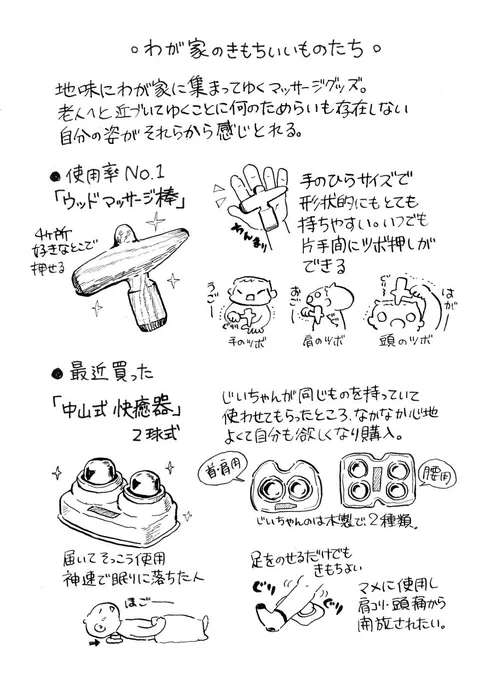 ○わが家のきもちいいものたち○
地味にわが家に集まってゆくマッサージグッズ。
老人へと近づいてゆくことに何のためらいも存在しない
自分の姿がそれらから感じとれる。
●使用率No.1
「ウッドマッサージ棒」
4ヶ所
好きなとこで
押せる
手のひらサイズで
形状的にもとても
持ちやすい。いつでも
片手間にツボ押しが
できる
うごー
手のツボ
おごー
肩のツボ
はがー
頭のツボ
●最近買った
「中山式快癒器」
2球式
じいちゃんが同じものを持っていて
使わせてもらったところ、なかなか心地
よくて自分も欲しくなり購入。
首・肩用
腰用
じいちゃんのは木製で2種類。
届いてそっこう使用
神速で眠りに落ちた人
ほごー
足をのせるだけでも
きもちよい
ぐりぐり
マメに使用し
肩コリ・頭痛から
開放されたい。